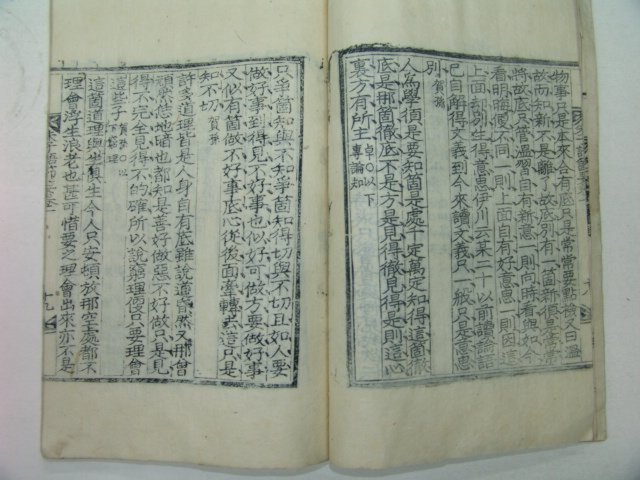 物事只是本來合有底只是常常要點檢又曰溫
故而知新不是離了故底別有一箇新須是常常
將故底只管溫習自有新意一則向時看與如今
看明晦便不同一則上面自有好意思一則因這
上面却別生得意思伊川云某二十以前讀論語
已自解得文義到今來讀文義只一般只是意思
別 賀孫
人爲學須是要知箇是處千定萬定知得這箇徹
底是那箇徹底不是方是見得徹見得是則這心
裏方有所主 卓○以下專論知
只爭箇知與不知爭箇知得切與不切且如人要
做好事到得見不好事也似乎可做方要做好事
又似有箇做不好事底心從後面牽轉去這只是
知不切 賀孫
許多道理皆是人身自有底雖說道昏然又那曾
頑然恁地暗也都知是善好做惡不好做只是見
得不完全見得不的確所以說窮理便只要理會
這些子 賀孫○以下窮理
這箇道理與生俱生今人只安頓放那空處都不
理會浮生浪老也甚可惜要之理會出來亦不是
十九